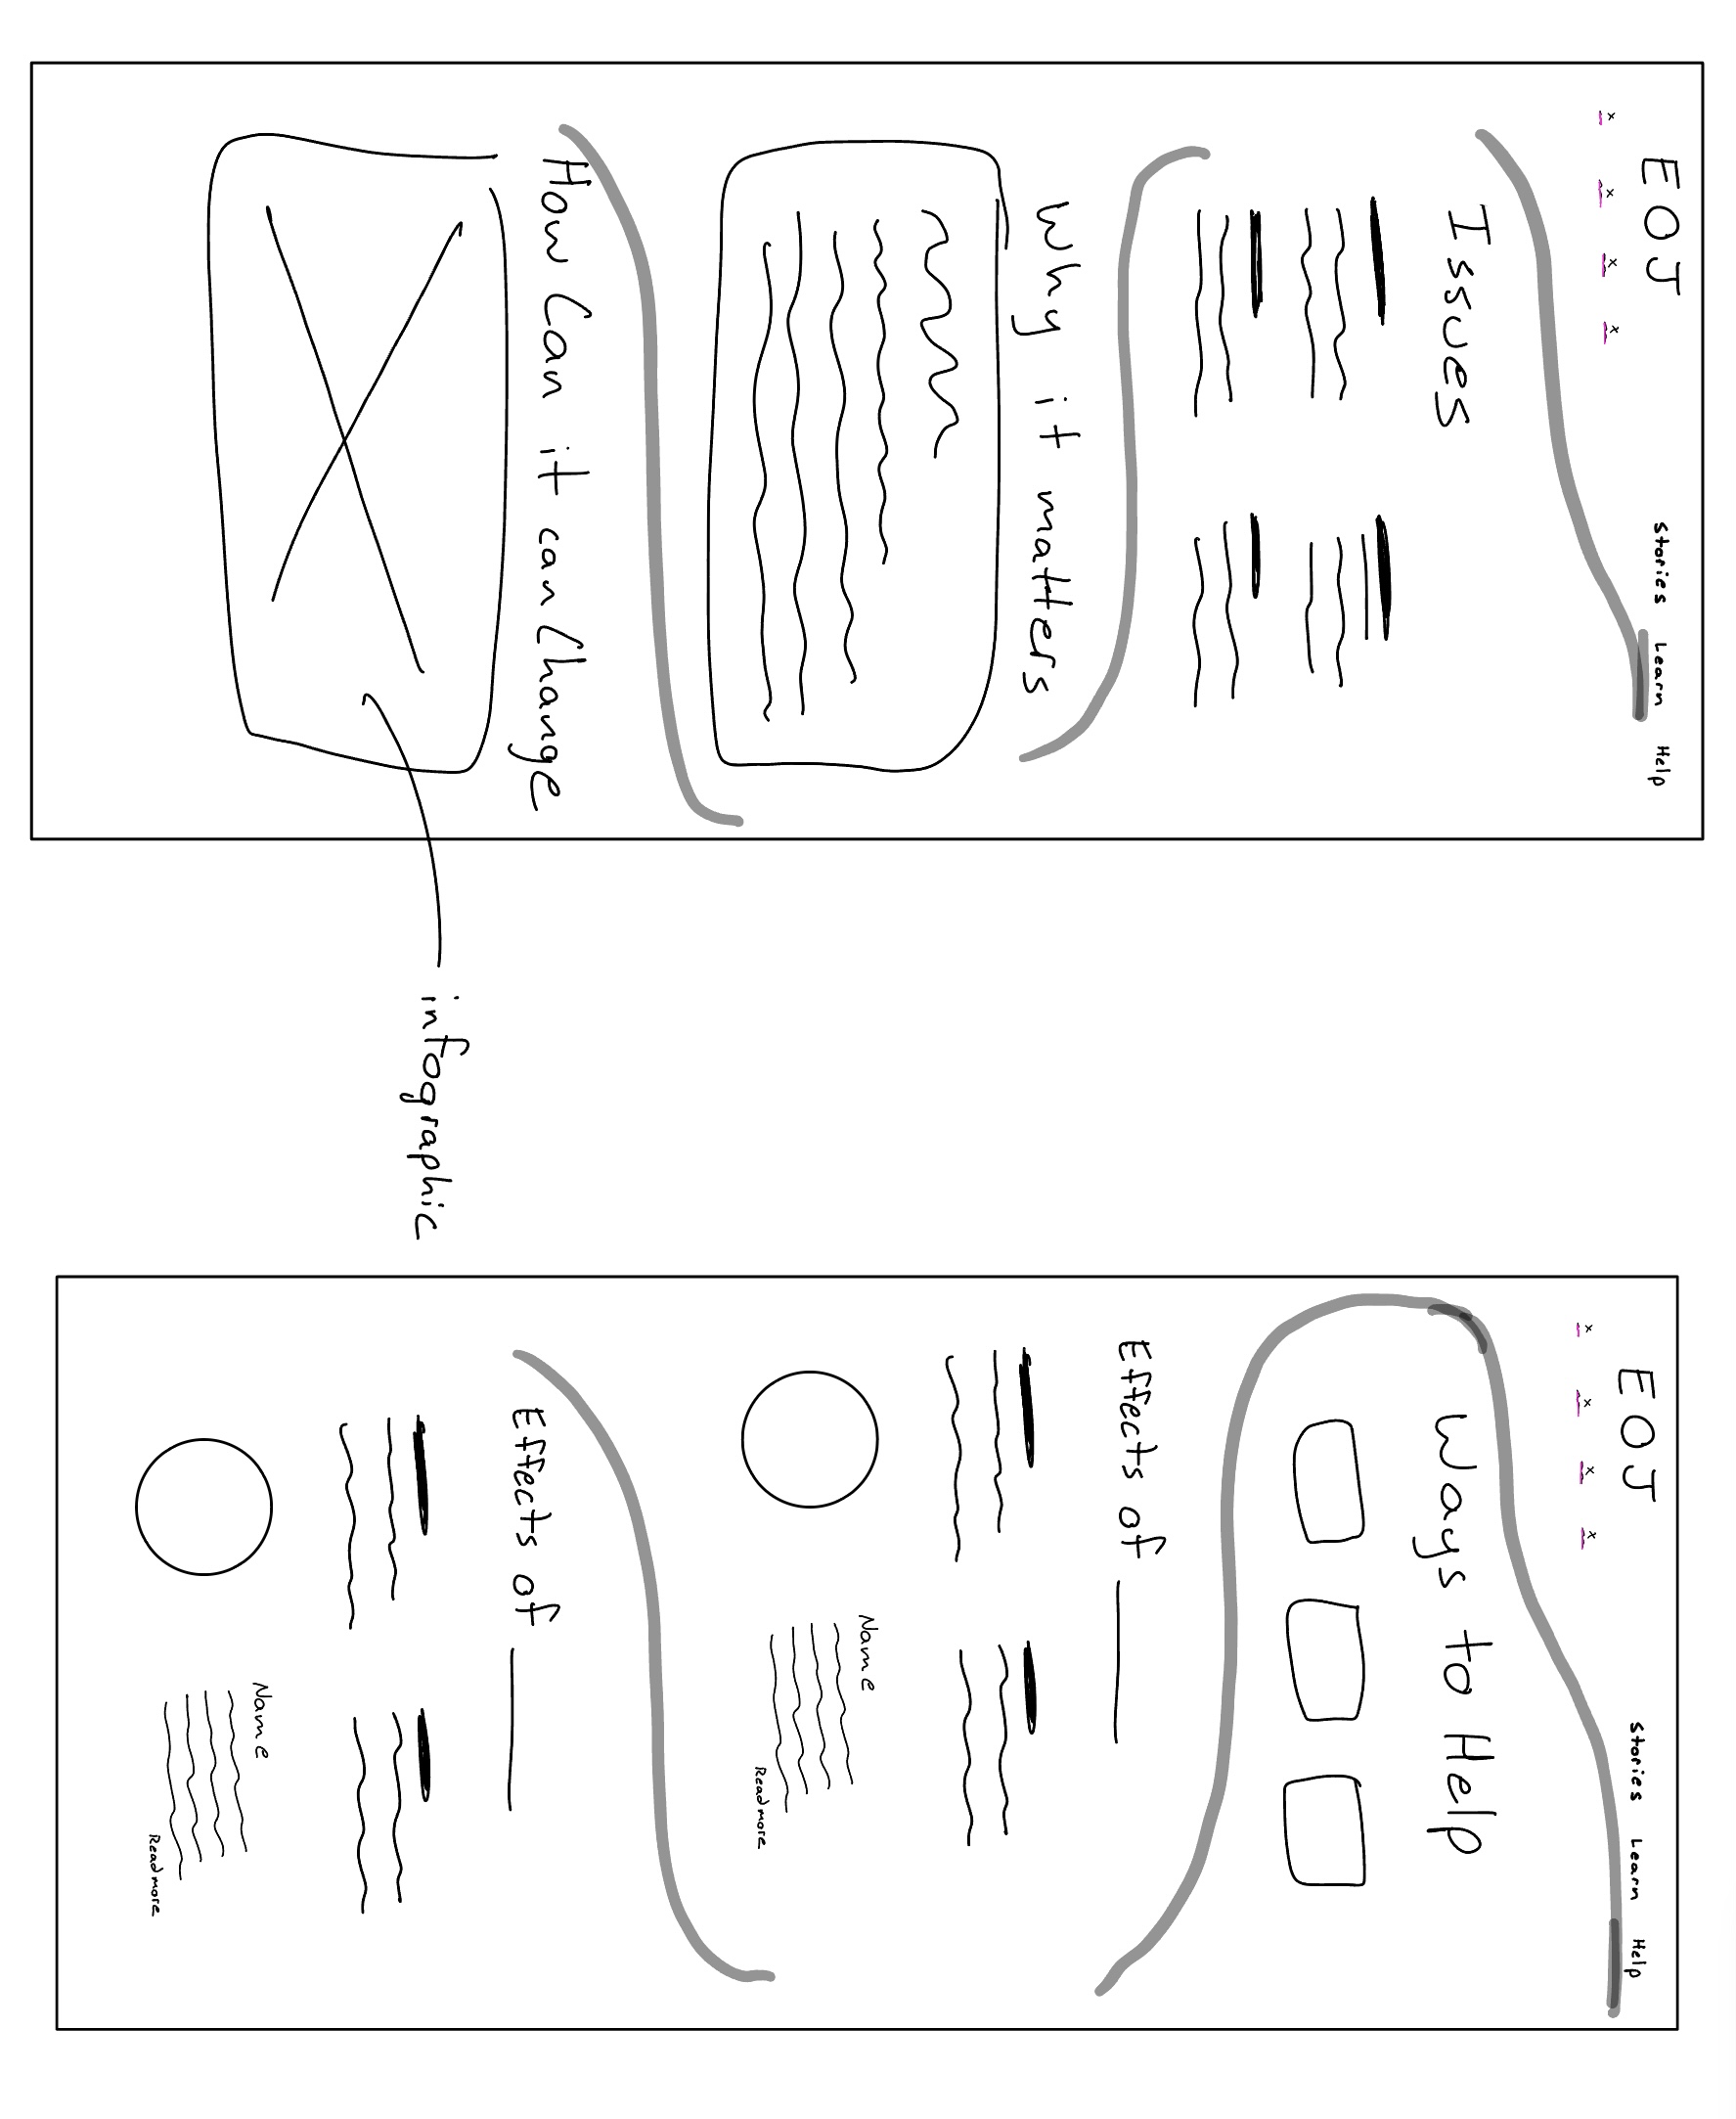 EOJ
Stories Learn Help
x x x x
Issues
Why it matters
How Can it can Change
infographic
EOJ
Stories Learn Help
x x x x
Ways to Help
Effects of
Name
Read more
Effects of
Name
Read more